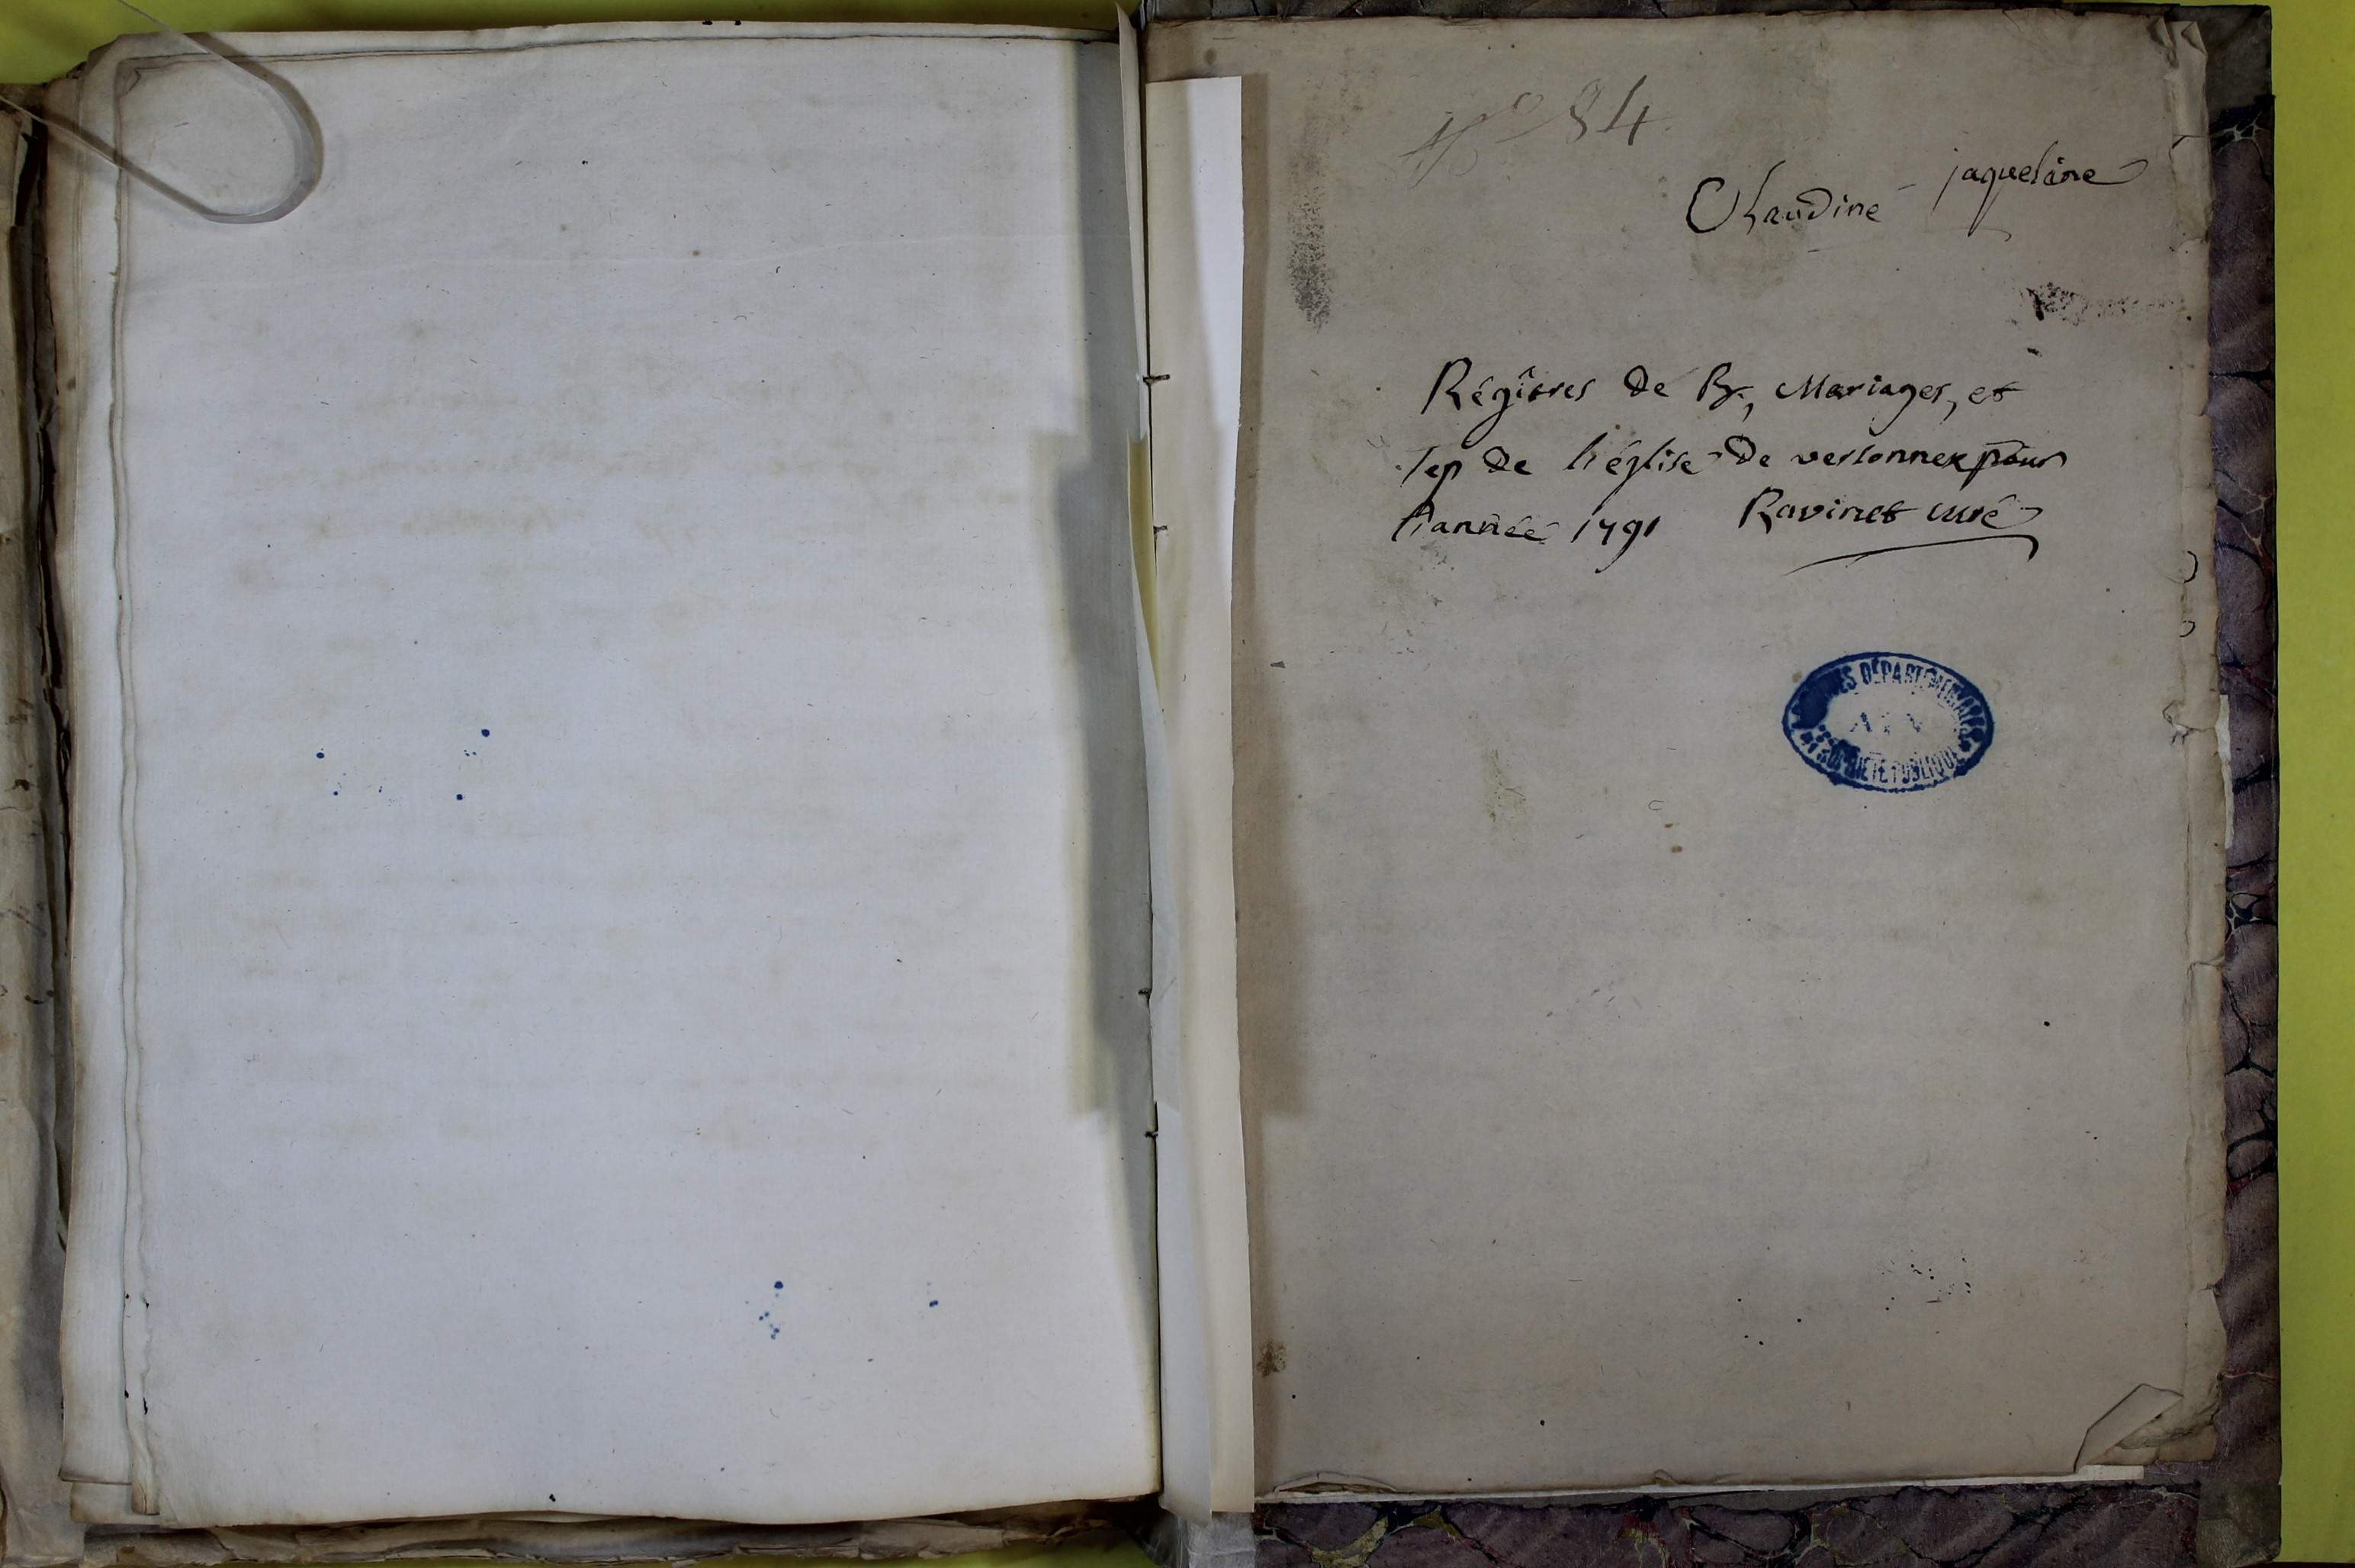 N° 84
Claudine jaqueline
Régitres de B., Mariages, et
sep de l'église de versonnex pour
l'année 1791 Ravinet curé
ARCHIVES DÉPARTEMENTALES
AIN
PROPRIÉTÉ PUBLIQUE